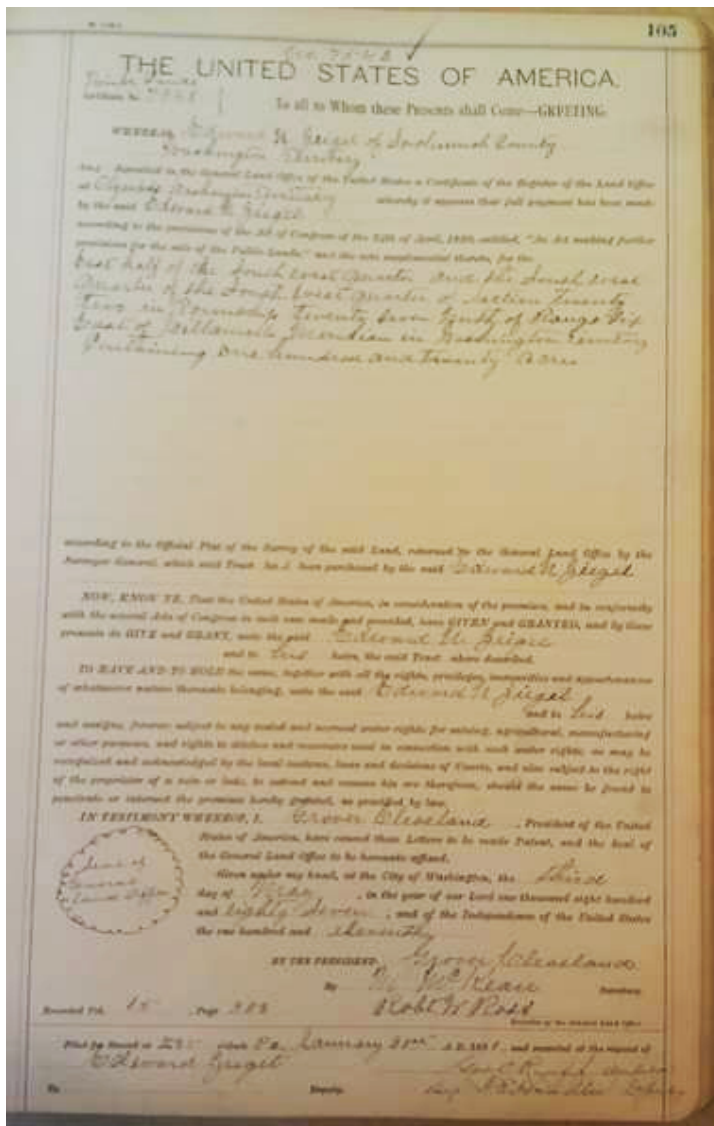 105
THE UNITED STATES OF AMERICA.
To all to Whom these Presents shall Come—GREETING:
WHEREAS, Edward N of Snohomish County
Washington Territory
deposited in the General Land Office of the United States a Certificate of the Register of the Land Office
at Olympia Washington Territory whereby it appears that full payment has been made
by the said Edward N
according to the provisions of the Act of Congress of the 24th of April, 1820, entitled, "An Act making further
provision for the sale of the Public Lands," and the acts supplemental thereto, for the
half of the South West quarter and the South
quarter of the South West quarter of Section Twenty
Two in Township Twenty Seven North of Range Six
East of Willamette Meridian in Washington Territory
Containing one hundred and twenty acres
according to the Official Plat of the Survey of the said Land, returned to the General Land Office by the
Surveyor General, which said Tract has been purchased by the said Edward N
NOW, KNOW YE, That the United States of America, in consideration of the premises, and in conformity
with the several Acts of Congress in such case made and provided, have GIVEN and GRANTED, and by these
presents do GIVE and GRANT, unto the said Edward N
and to his heirs, the said Tract above described.
TO HAVE AND TO HOLD the same, together with all the rights, privileges, immunities and appurtenances
of whatsoever nature thereunto belonging, unto the said Edward N
and to his heirs
and assigns, forever; subject to any vested and accrued water rights for mining, agricultural, manufacturing
or other purposes, and rights to ditches and reservoirs used in connection with such water rights, as may be
recognized and acknowledged by the local customs, laws and decisions of Courts, and also subject to the right
of the proprietor of a vein or lode, to extract and remove his ore therefrom, should the same be found to
penetrate or intersect the premises hereby granted, as provided by law.
IN TESTIMONY WHEREOF, I, Grover Cleveland, President of the United
States of America, have caused these Letters to be made Patent, and the Seal of
the General Land Office to be hereunto affixed.
Seal of
General
Land Office
Given under my hand, at the City of Washington, the third
day of , in the year of our Lord one thousand eight hundred
and eighty seven, and of the Independence of the United States
the one hundred and eleventh
BY THE PRESIDENT: Grover Cleveland
By M McKean Secretary.
Recorded Vol. 15, Page Robt W Ross
Recorder of the General Land Office.
Filed for Record at January A.D. 188 , and recorded at the request of
Edward
By Deputy.